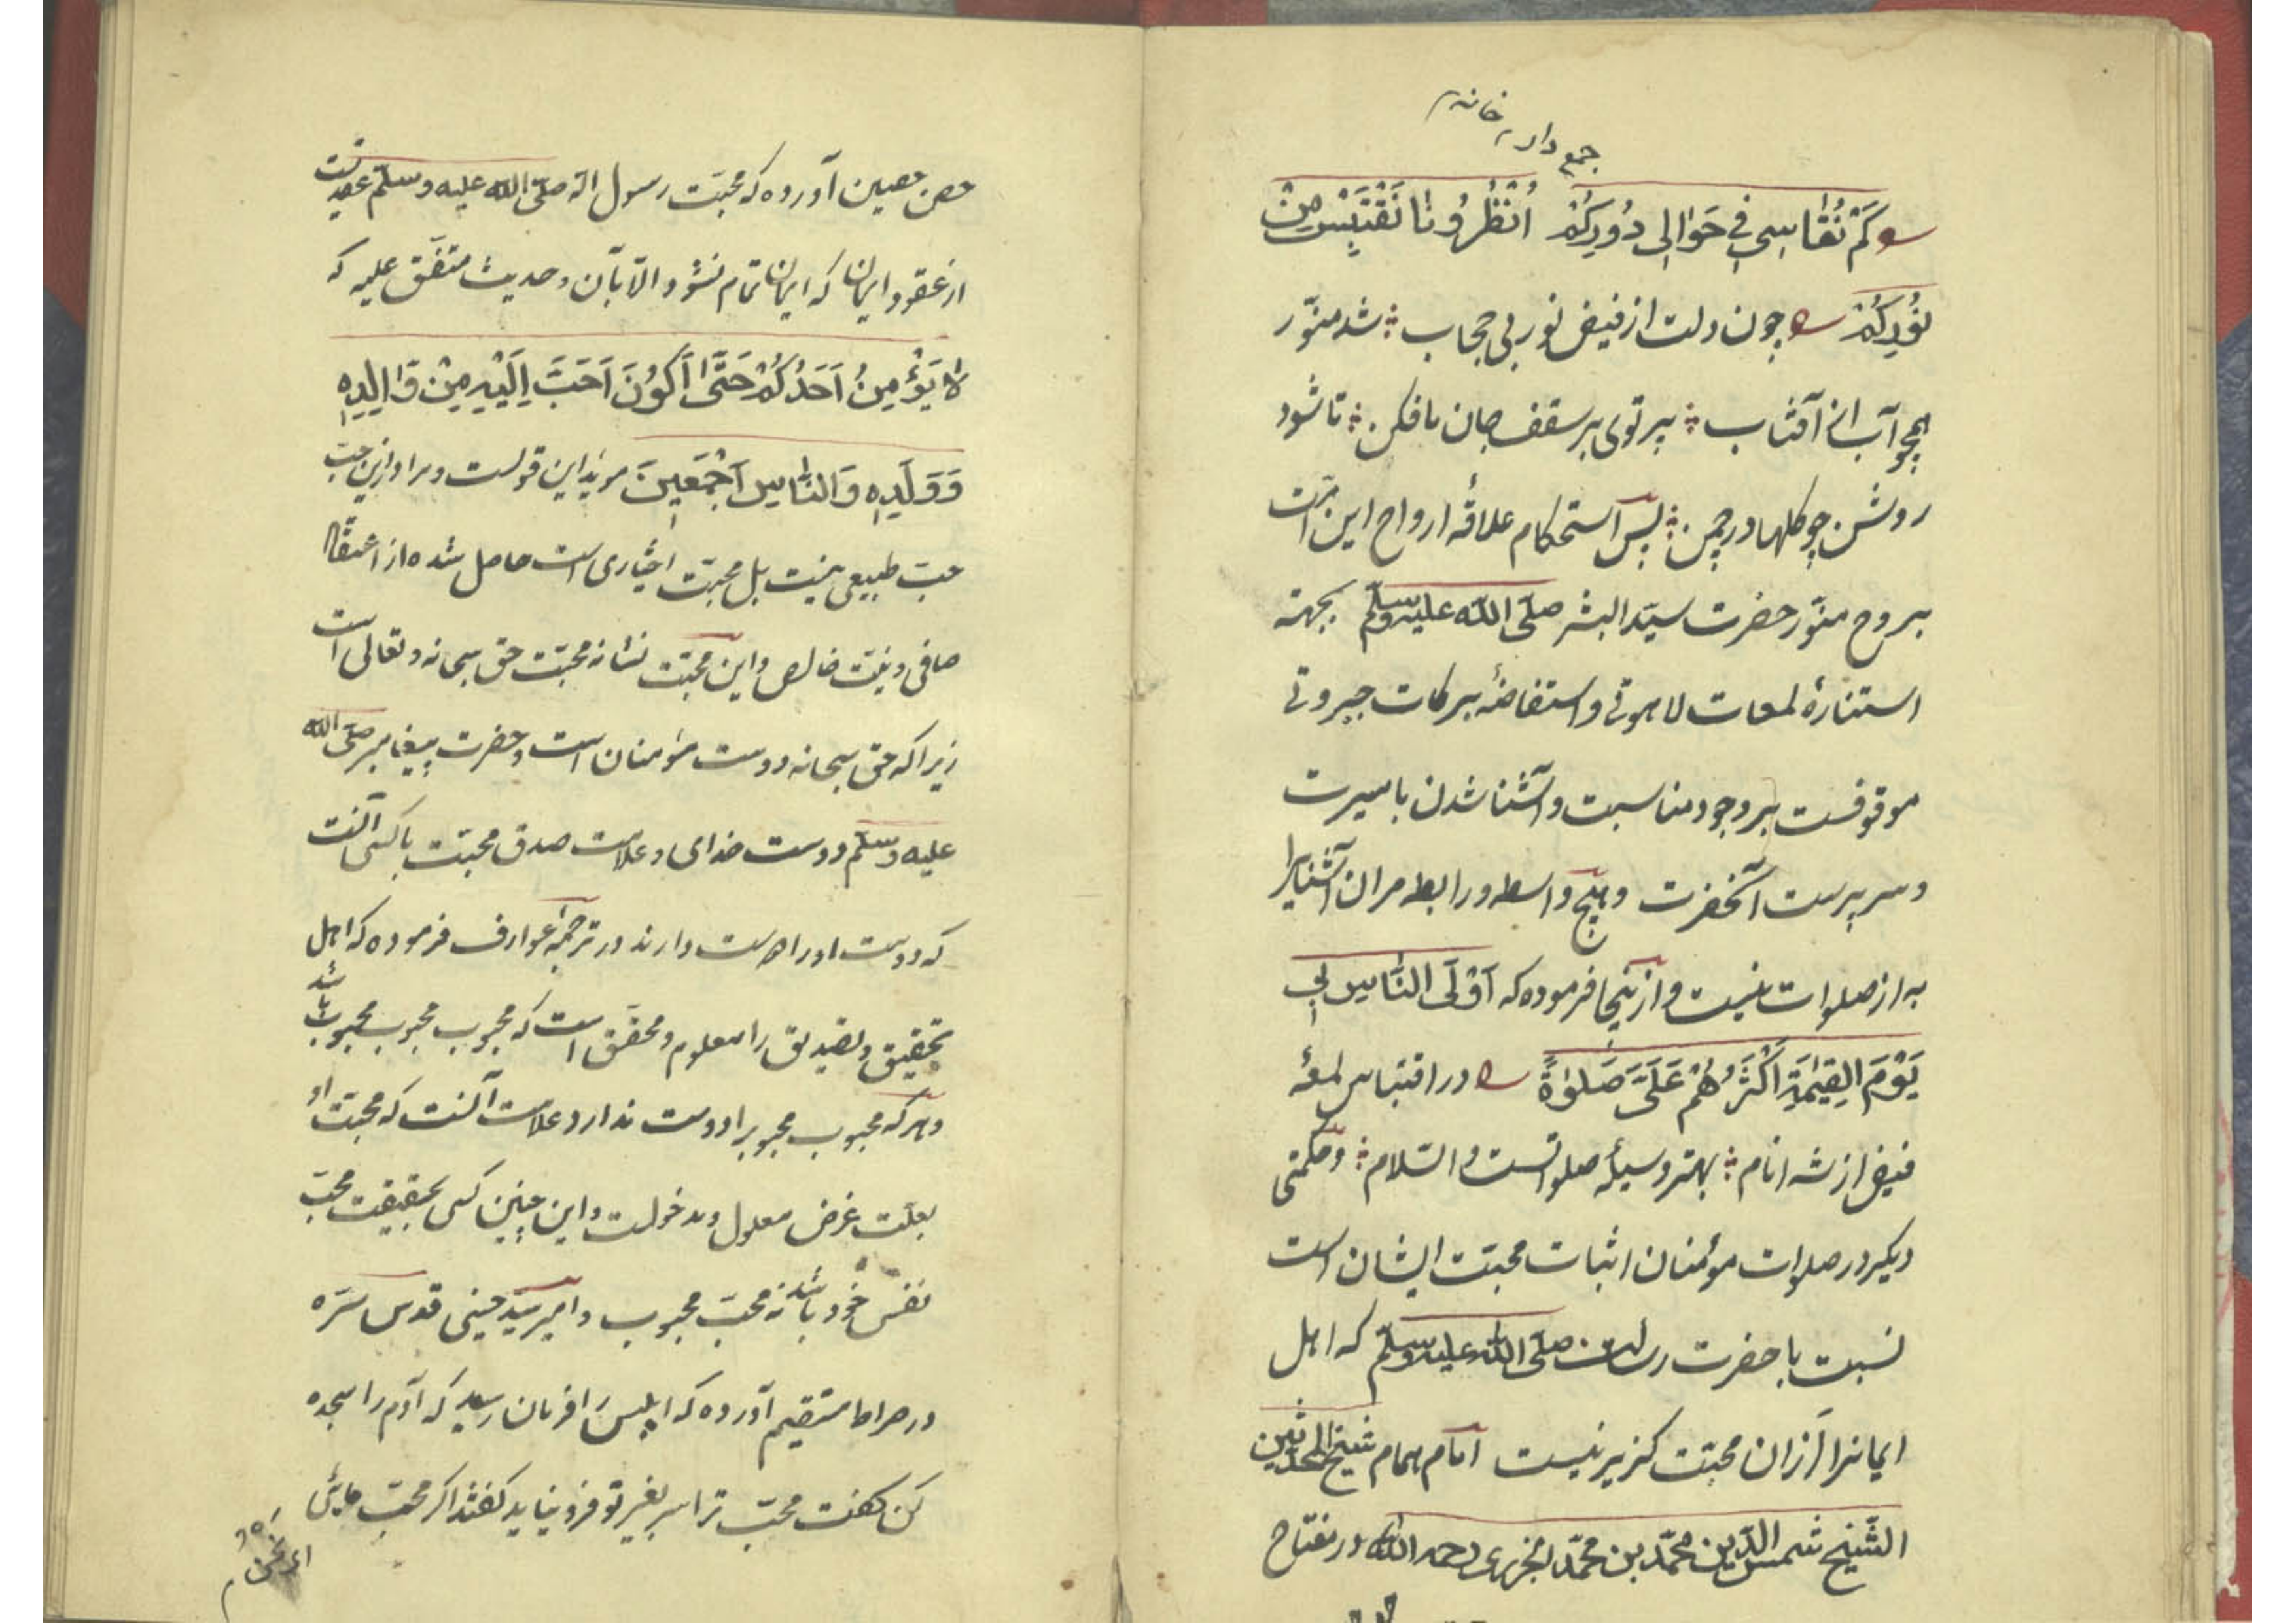 جمع دار خانه
کَمْ نُقَاسِی فِی حَوَالِی دُورِکُمْ اُنْظُرُونَا نَقْتَبِسْ مِنْ
نُورِکُمْ چون دلت از فیض نور بی حجاب شد منوّر
همچو آب از آفتاب پرتوی بر سقف جان ما فکن تا شود
روشن چو کلها در چمن پس استحکام علاقهٔ ارواح این امّت
بروح منوّر حضرت سیّد البشر صلّی اللّه علیه وسلّم بجهته
استنارهٔ لمعات لاهوتی و استفاضهٔ برکات جبروتی
موقوفست بر وجود مناسبت و آشنا شدن با سیرت
و سرپرست آنحضرت و هیچ واسطه و رابطه مر ان آشنایرا
به از صلوات نیست و ازینجا فرموده که اَوْلَی النَّاسِ بِی
یَوْمَ القِیٰمَةِ اَکْثَرُهُمْ عَلَیَّ صَلٰوةً در اقتباس لمعهٔ
فیض از شه انام بهتر وسیلهٔ صلواتست والسّلام و حکمتی
دیکر در صلوات مؤمنان اثبات محبّت ایشان است
نسبت با حضرت رسالت صلّی اللّه علیه وسلّم که اهل
ایمانرا از ان محبّت کزیر نیست امام همام شیخ المحدّثین
الشّیخ شمس الدّین محمّد بن محمّد الجزری رحمه اللّه در مفتاح
حصن حصین آورده که محبّت رسول اللّه صلّی اللّه علیه وسلّم عقدیست
از عقود ایمان که ایمان تمام نشود الّا بآن و حدیث متفّق علیه که
لَا یُؤْمِنُ اَحَدُکُمْ حَتّٰی اَکُونَ اَحَبَّ اِلَیْهِ مِنْ وَالِدِهِ
وَ وَلَدِهِ وَالنَّاسِ اَجْمَعِینَ مؤید این قولست و مراد ازین حبّ
حبّ طبیعی نیست بل محبّت اختیاری است حاصل شده از اعتقاد
صافی و نیّت خالص و این محبّت نشانه محبّت حق سبحانه و تعالی است
زیرا که حق سبحانه دوست مؤمنان است و حضرت پیغامبر صلّی اللّه
علیه وسلّم دوست خدای و علامت صدق محبّت با کسی آنست
که دوست او را دوست دارند در ترجمهٔ عوارف فرموده که اهل
تحقیق و تصدیق را معلوم و محقّق است که محبوب محبوب محبوب باشد
و هر که محبوب محبوبرا دوست ندارد علامت آنست که محبّت او
بعلّت غرض معلول و مدخولست و این چنین کس بحقیقت محبّ
نفس خود باشد نه محبّ محبوب و امیر سیّد حسینی قدس سرّه
در صراط مستقیم آورده که ابلیس را فرمان رسید که آدم را سجده
کن کفت محبّ ترا سر بغیر تو فرو نیاید کفتند اکر محبّ مایی